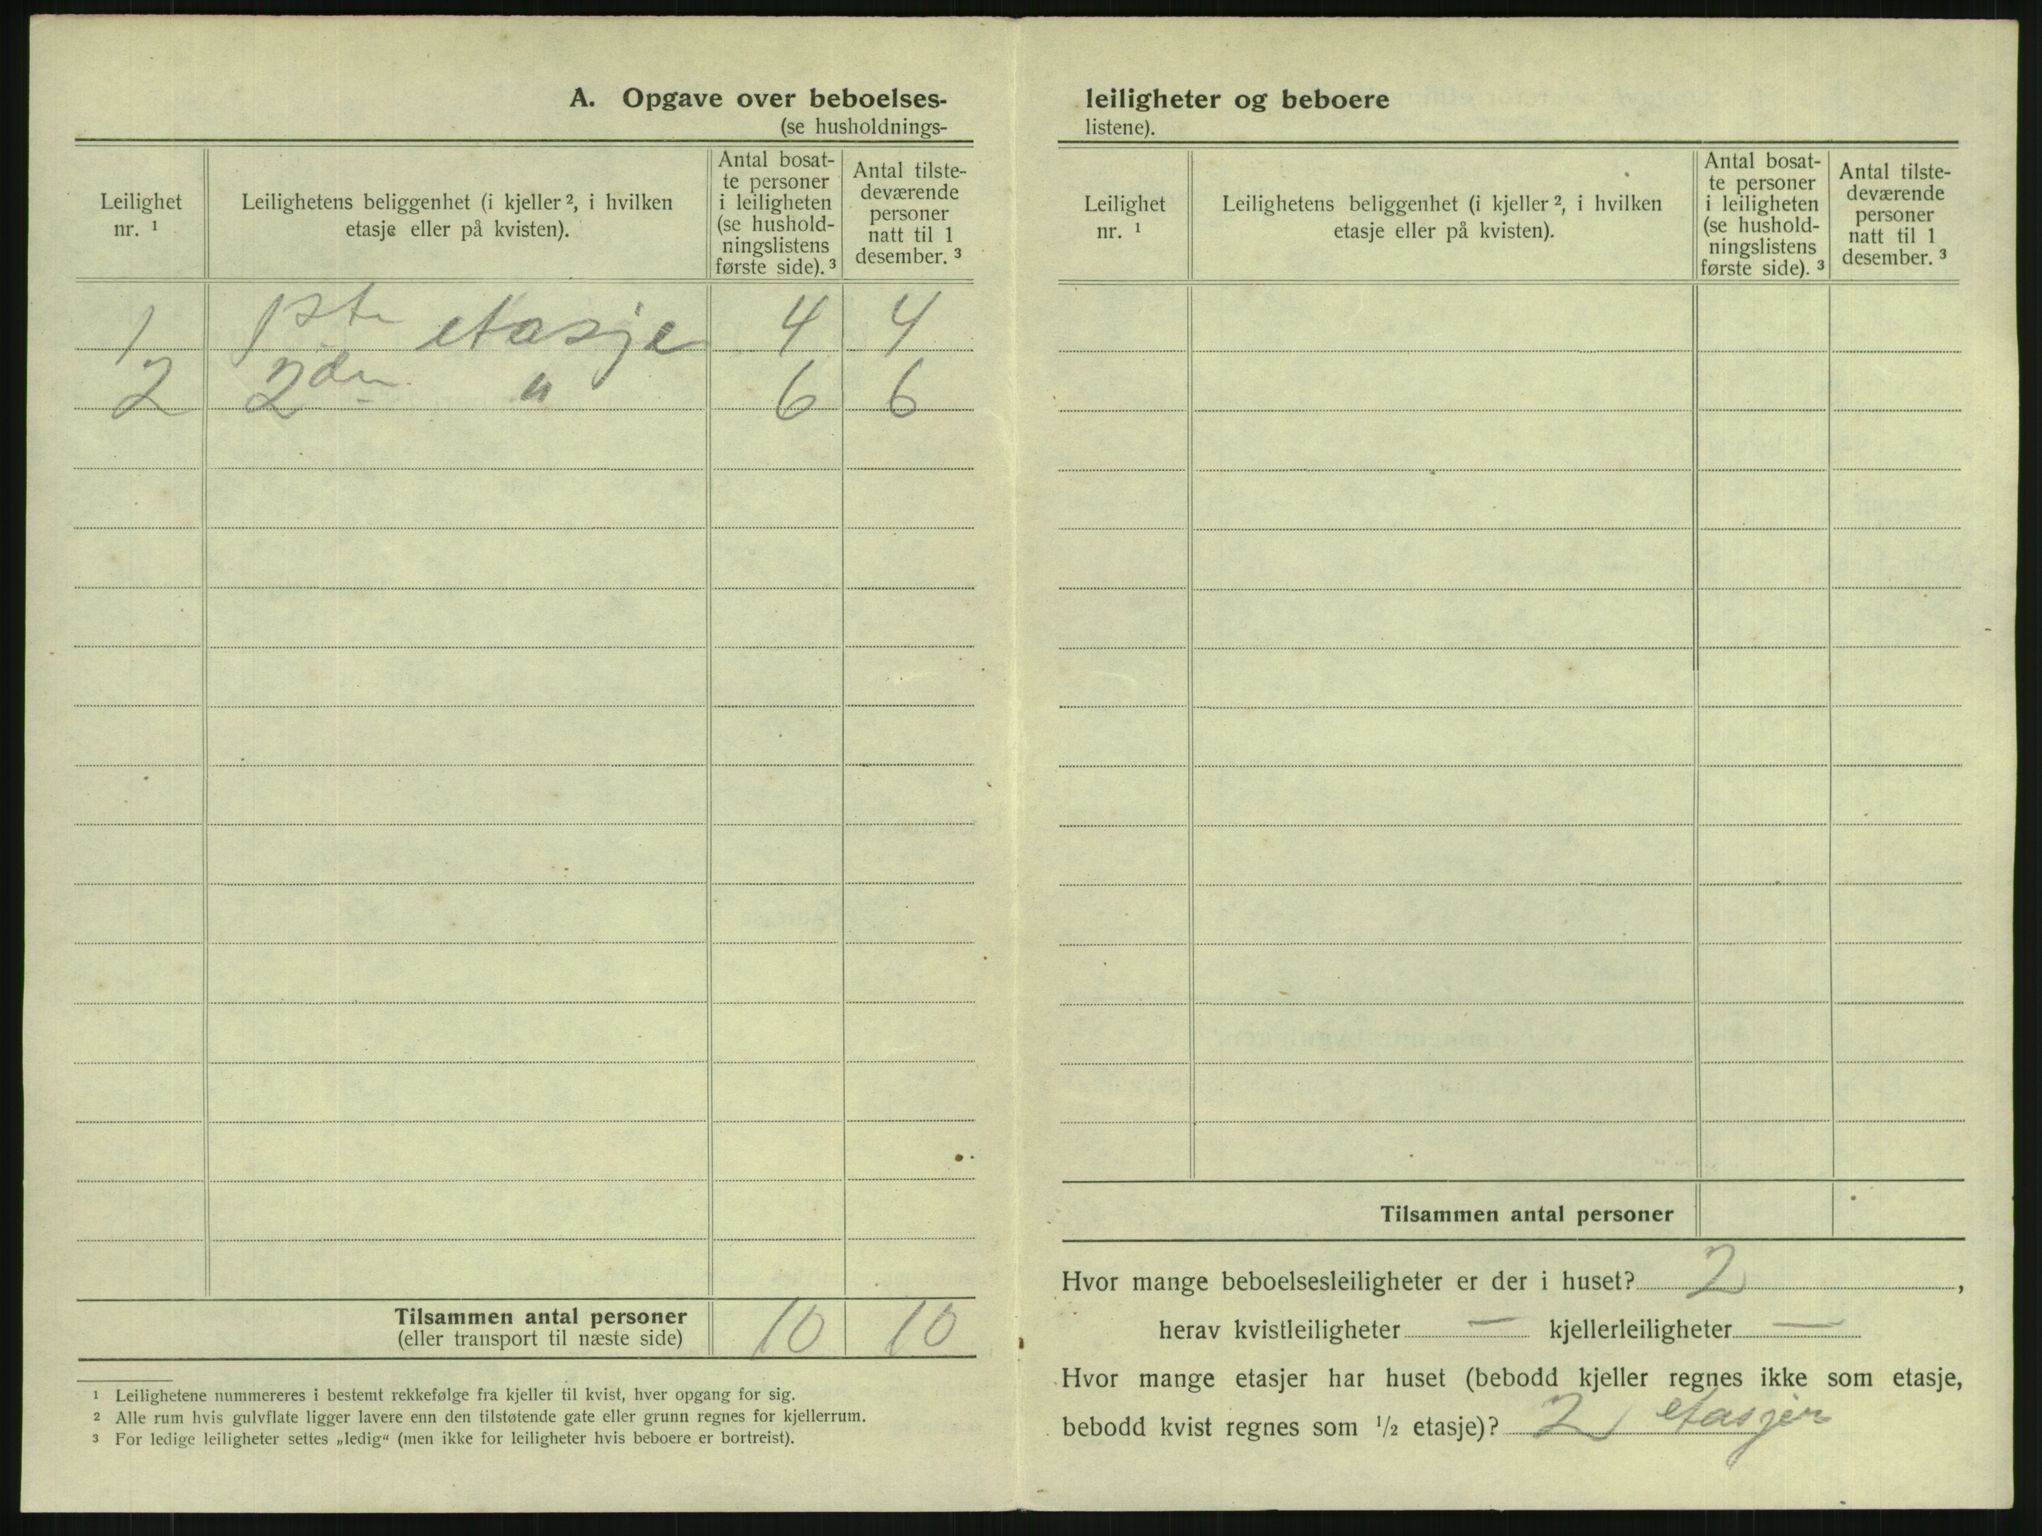 A. Opgave over beboelses-
(se husholdnings-
Leilighet
nr. ¹
Leilighetens beliggenhet (i kjeller ², i hvilken
etasje eller på kvisten).
Antal bosat-
te personer
i leiligheten
(se hushold-
ningslistens
første side). ³
Antal tilste-
deværende
personer
natt til 1
desember. ³
1 1ste etasje 4 4
2 2den " 6 6
Tilsammen antal personer 10 10
(eller transport til næste side)
¹ Leilighetene nummereres i bestemt rekkefølge fra kjeller til kvist, hver opgang for sig.
² Alle rum hvis gulvflate ligger lavere enn den tilstøtende gate eller grunn regnes for kjellerrum.
³ For ledige leiligheter settes „ledig“ (men ikke for leiligheter hvis beboere er bortreist).
leiligheter og beboere
listene).
Leilighet
nr. ¹
Leilighetens beliggenhet (i kjeller ², i hvilken
etasje eller på kvisten).
Antal bosat-
te personer
i leiligheten
(se hushold-
ningslistens
første side). ³
Antal tilste-
deværende
personer
natt til 1
desember. ³
Tilsammen antal personer
Hvor mange beboelsesleiligheter er der i huset? 2 ,
herav kvistleiligheter — kjellerleiligheter —
Hvor mange etasjer har huset (bebodd kjeller regnes ikke som etasje,
bebodd kvist regnes som ½ etasje)? 2 etasjer